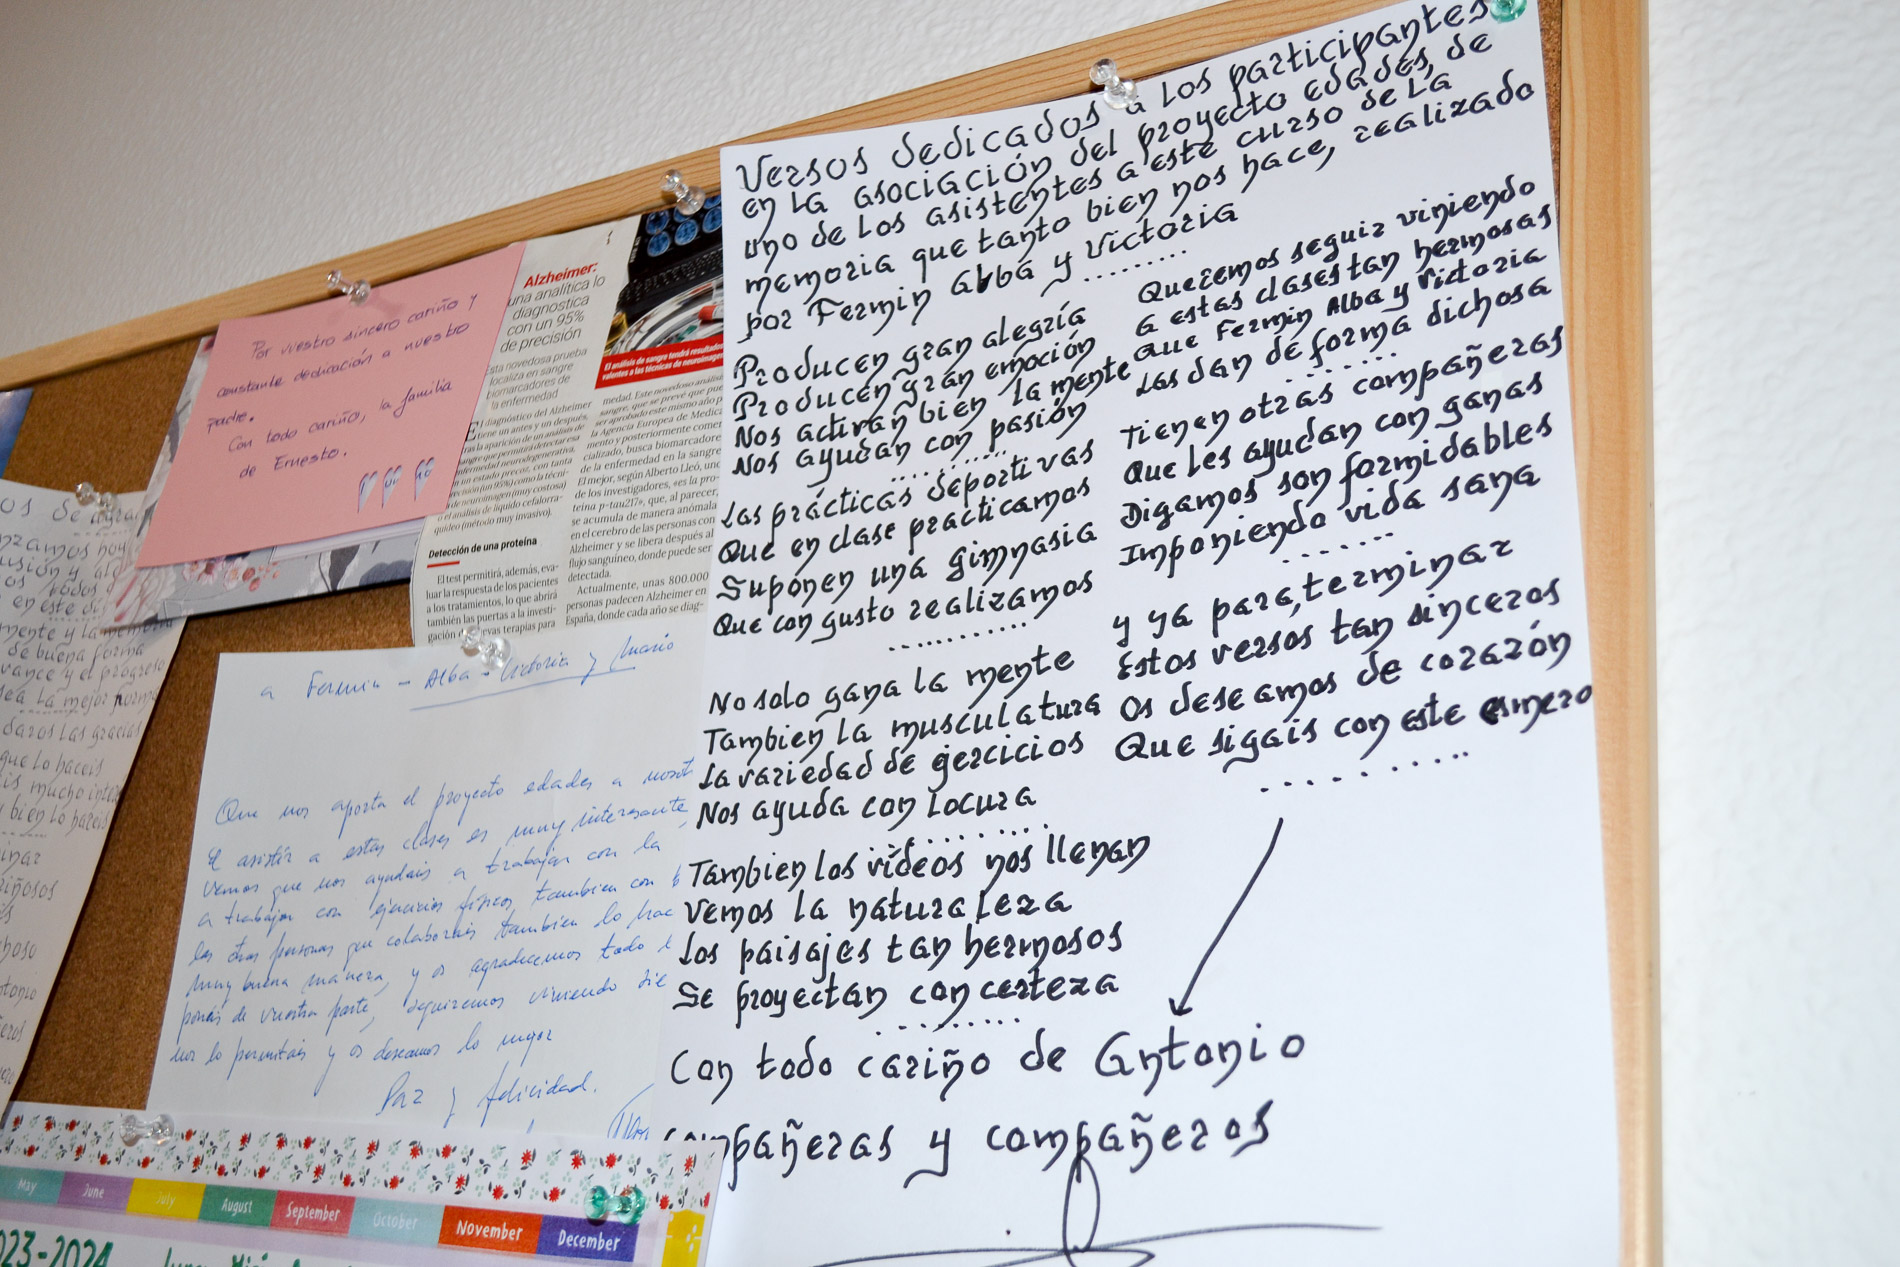 Versos dedicados a los participantes
en la asociación del proyecto edades, de
uno de los asistentes a este curso de la
memoria que tanto bien nos hace, realizado
por Fermin Alba y Victoria
..........
Producen gran alegría
Producen gran emoción
Nos activan bien la mente
Nos ayudan con pasión
..........
Las prácticas deportivas
Que en clase practicamos
Suponen una gimnasia
Que con gusto realizamos
..........
No solo gana la mente
Tambien la musculatura
La variedad de ejercicios
Nos ayuda con locura
..........
Tambien los vídeos nos llenan
Vemos la naturaleza
Los paisajes tan hermosos
Se proyectan con certeza
..........
Queremos seguir viniendo
a estas clases tan hermosas
que Fermin Alba y Victoria
Las dan de forma dichosa
.......
Tienen otras compañeras
Que les ayudan con ganas
Digamos son formidables
Imponiendo vida sana
.......
y ya para, terminar
Estos versos tan sinceros
Os deseamos de corazón
Que sigais con este esmero
..........
Con todo cariño de Antonio
compañeras y compañeros
Por vuestro sincero cariño y
constante dedicación a nuestro
padre.
Con todo cariño, la familia
de Ernesto.
Alzheimer:
una analítica lo
diagnostica
con un 95%
de precisión
novedosa prueba
localiza en sangre
biomarcadores de
la enfermedad
El análisis de sangre tendrá resultados
valentes a las técnicas de neuroimagen
El diagnóstico del Alzheimer
tiene un antes y un después
tras la aparición de un análisis de
sangre que permitirá detectar esa
enfermedad neurodegenerativa,
en un estado precoz, con tanta
precisión (un 95%) como la técni-
neuroimagen (muy costosa)
o el análisis de líquido cefalorra-
quídeo (método muy invasivo).
Detección de una proteína
El test permitirá, además, eva-
luar la respuesta de los pacientes
a los tratamientos, lo que abrirá
también las puertas a la investi-
gación de nuevas terapias para
medad. Este novedoso análisis
sangre, que se prevé que pue
ser aprobado este mismo año p
la Agencia Europea de Medica
mento y posteriormente comer
cializado, busca biomarcadore
de la enfermedad en la sangre
El mejor, según Alberto Lleó, uno
de los investigadores, «es la pro-
teína p-tau217», que, al parecer,
se acumula de manera anómala
en el cerebro de las personas con
Alzheimer y se libera después al
flujo sanguíneo, donde puede ser
detectada.
Actualmente, unas 800.000
personas padecen Alzheimer en
España, donde cada año se diag-
a Fermin - Alba - Victoria y Mario
Que nos aporta el proyecto edades a nosot
El asistir a estas clases es muy interesante,
vemos que nos ayudais a trabajar con la
a trabajar con ejercicios físicos, tambien con
las otras personas que colaborais tambien lo hac
muy buena manera, y os agradecemos todo
poneis de vuestra parte, seguiremos viniendo sie
nos lo permitais y os deseamos lo mejor
Paz y felicidad.
mente y la memoria
de buena forma
vance y el progreso
sea la mejor norma
daros las gracias
que lo haceis
mucho
y bien lo haceis
May June July August September October November December
023-2024